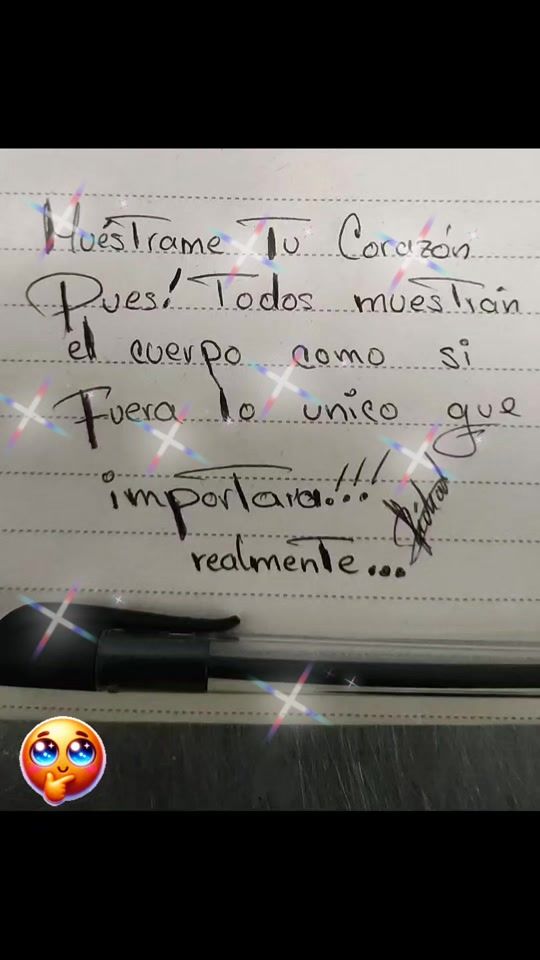 Muéstrame Tu Corazón
Pues! Todos muestran
el cuerpo como si
Fuera lo unico que
importara!!!
realmente...